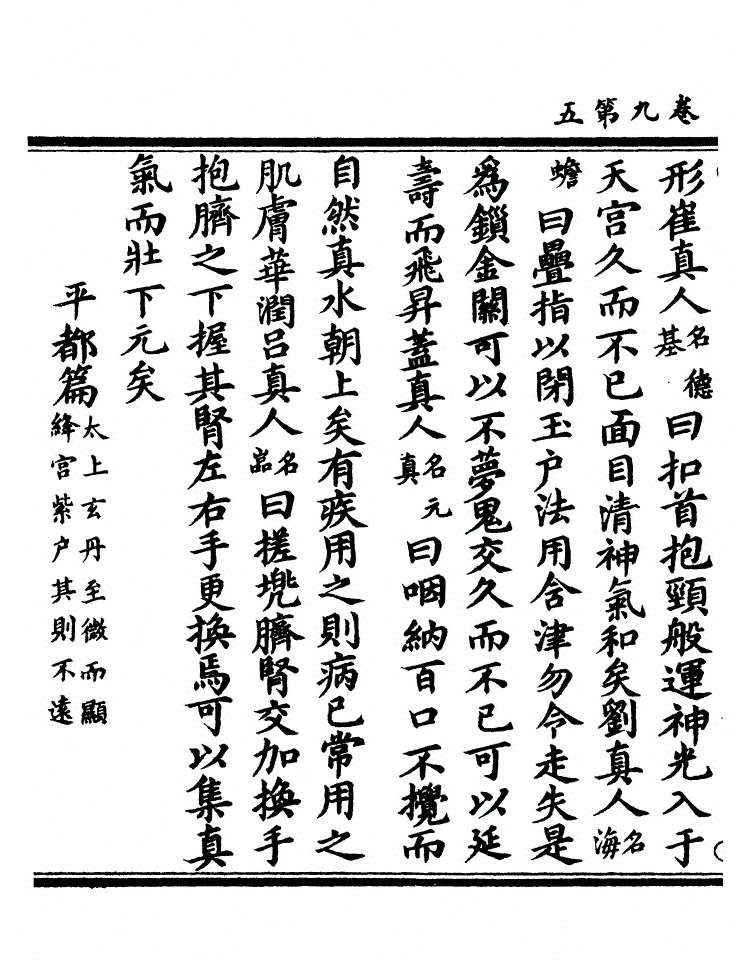 卷九第五
形崔真人名德基曰扣首抱頸般運神光入于
天宮久而不已面目清神氣和矣劉真人名海
蟾曰疊指以閉玉户法用含津勿令走失是
為鎖金關可以不夢鬼交久而不已可以延
壽而飛昇蓋真人名元真曰咽納百口不攪而
自然真水朝上矣有疾用之則病已常用之
肌膚華潤呂真人名喦曰搓兠臍腎交加換手
抱臍之下握其腎左右手更換焉可以集真
氣而壯下元矣
平都篇太上玄丹至微而顯
絳宮紫户其則不遠